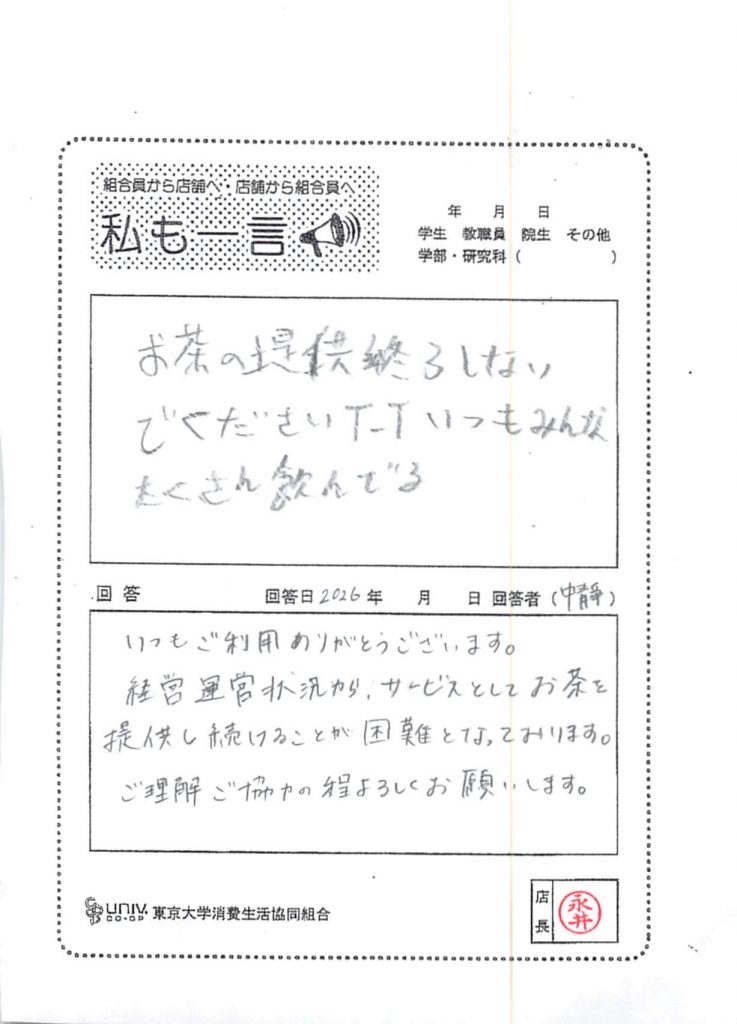 組合員から店舗へ・店舗から組合員へ
私も一言
年 月 日
学生 教職員 院生 その他
学部・研究科( )
お茶の提供終了しない
でくださいT_Tいつもみんな
たくさん飲んでる
回答 回答日2026年 月 日 回答者(中静)
いつもご利用ありがとうございます。
経営運営状況から、サービスとしてお茶を
提供し続けることが困難となっております。
ご理解ご協力の程よろしくお願いします。
UNIV.
CO-OP
東京大学消費生活協同組合
店長
永井